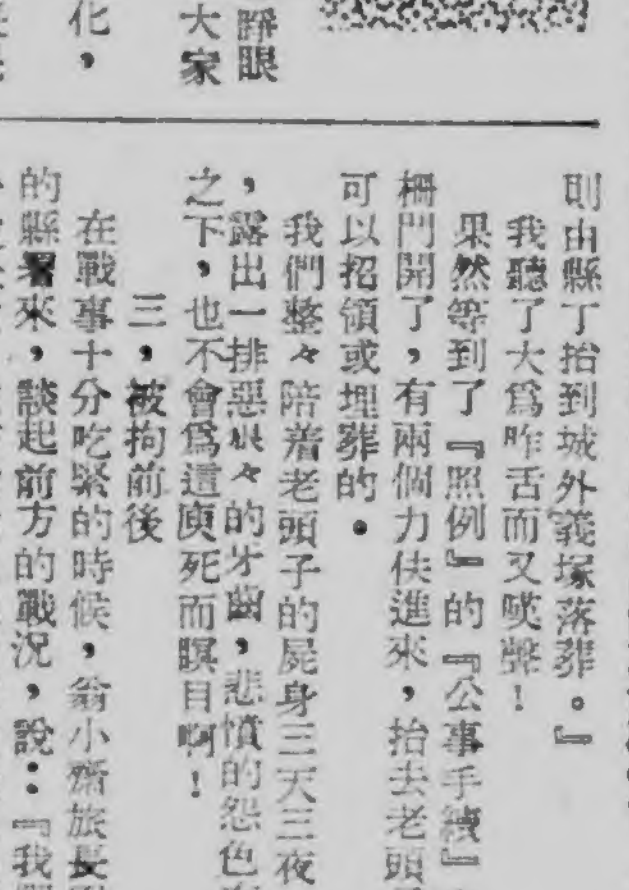 睜眼
大家
化，
則由縣丁抬到城外義塚落葬。』
我聽了大爲咋舌而又嘆聲！
果然等到了『照例』的『公事手續』
柵門開了，有兩個力伕進來，抬去老頭
可以招領或埋葬的。
我們整々陪着老頭子的屍身三天三夜
，露出一排惡狠々的牙齒，悲憤的怨色
之下，也不會爲這庾死而瞑目啊！
三，被拘前後
在戰事十分吃緊的時候，翁小齋旅長
的縣署來，談起前方的戰況，說：『我